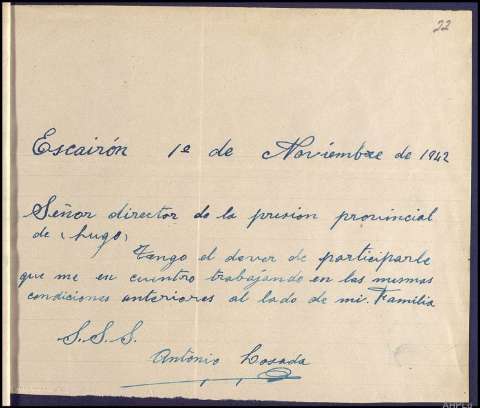 22
Escairón 1º de Noviembre de 1942
Señor director de la prision provincial
de Lugo,
Tango el dever de participarle
que me en cuentro trabajando en las mesmas
condiciones anteriores al lado de mi. Familia
S.S.S.
Antonio Losada
AHPLU